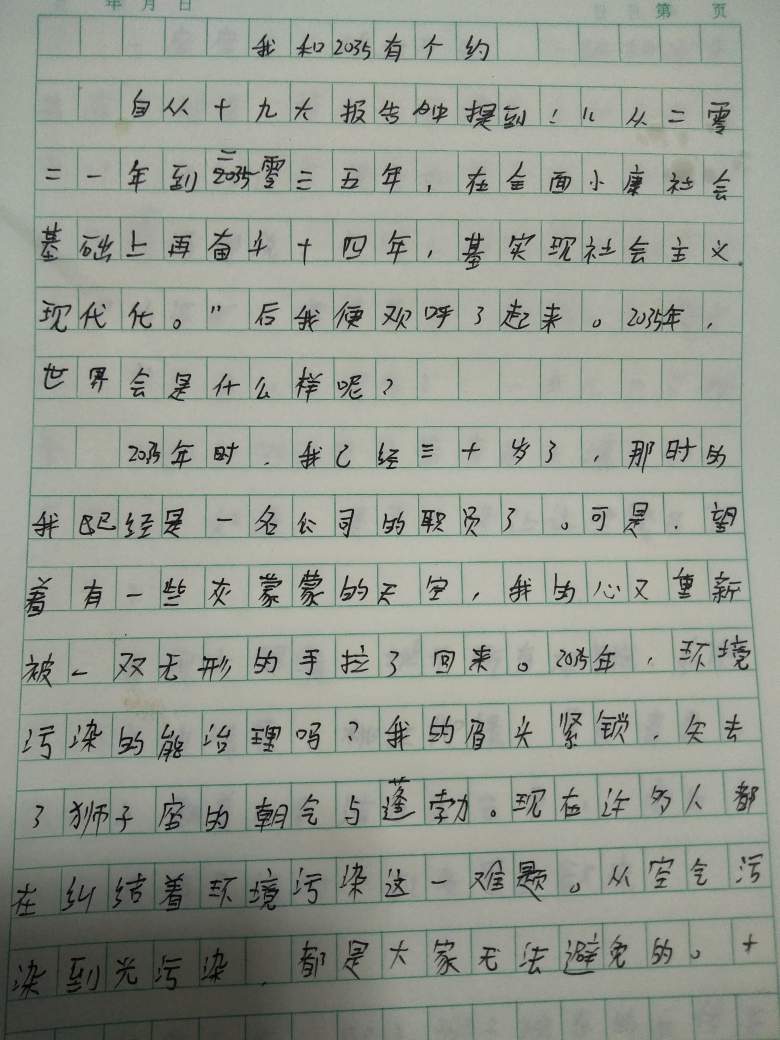 年 月 日 第 页
我和2035有个约
自从十九大报告中提到:“从二零
二一年到二零三五年,在全面小康社会
基础上再奋斗十四年,基实现社会主义
现代化。”后我便欢呼了起来。2035年,
世界会是什么样呢?
2035年时,我已经三十岁了,那时的
我已经是一名公司的职员了。可是,望
着有一些灰蒙蒙的天空,我的心又重新
被一双无形的手拉了回来。2035年,环境
污染的能治理吗?我的眉头紧锁,失去
了狮子座的朝气与蓬勃。现在许多人都
在纠结着环境污染这一难题。从空气污
染到光污染,都是大家无法避免的。十